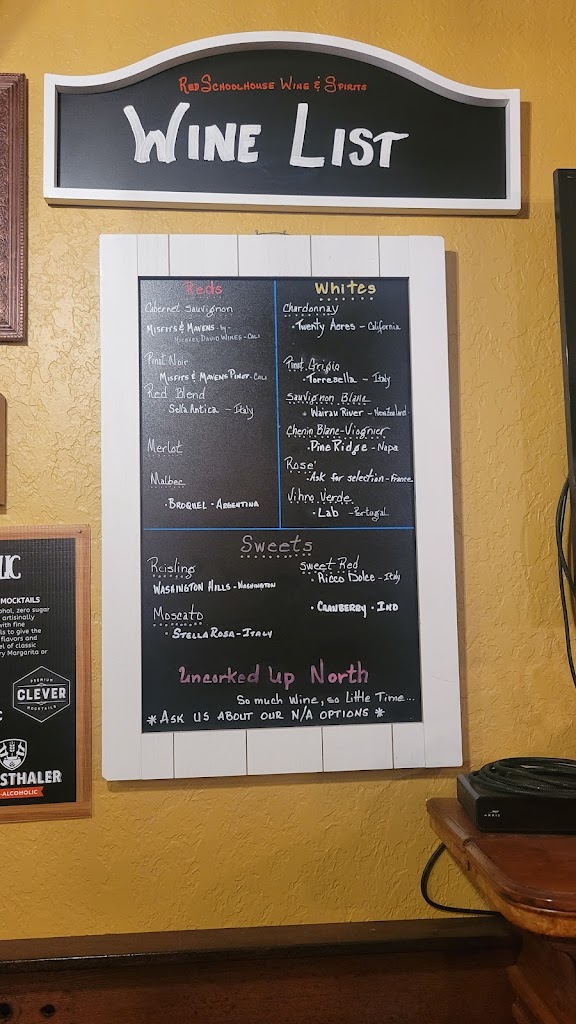 Red Schoolhouse Wine & Spirits
Wine List
Reds
Cabernet Sauvignon
Misfits & Mavens - by -
Michael David Wines - Cali
Pinot Noir
Misfits & Mavens Pinot - Cali
Red Blend
Sella Antica - Italy
Merlot
Malbec
• Broquel • Argentina
Whites
Chardonnay
• Twenty Acres - California
Pinot Grigio
• Torresella - Italy
Sauvignon Blanc
• Wairau River - New Zealand
Chenin Blanc-Viognier
• Pine Ridge - Napa
Rose'
• Ask for selection - France
Vihno Verde
• Lab - Portugal
Sweets
Reisling
Washington Hills - Washington
Moscato
• Stella Rosa - Italy
Sweet Red
• Ricco Dolce - Italy
• Cranberry • Ind
Uncorked Up North
So much Wine, so Little Time...
* Ask us about our N/A options *
MOCKTAILS
ohol, zero sugar
artisinally
with fine
ls to give the
flavors and
el of classic
ry Margarita or
PREMIUM
CLEVER
MOCKTAILS
STHALER
-ALCOHOLIC
ARRIS